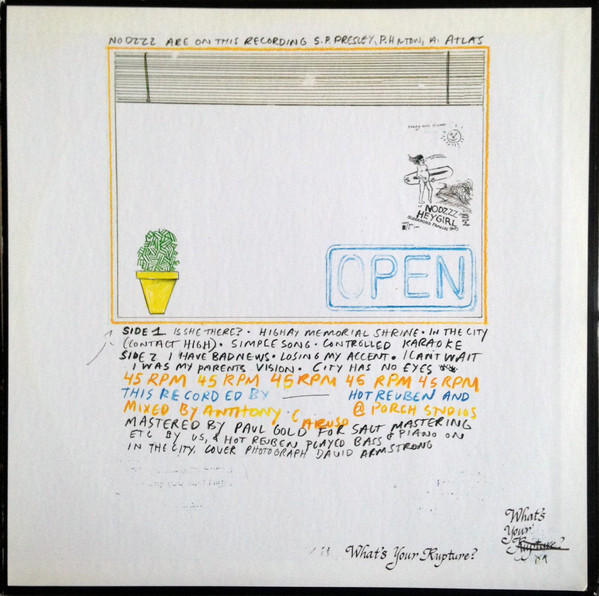 NODZZZ ARE ON THIS RECORDING S.P. PRESLEY, P. HINTON, A. ATLAS
NODZZZ
HEYGIRL
OPEN
SIDE 1 IS SHE THERE? · HIGHAY MEMORIAL SHRINE · IN THE CITY
(CONTACT HIGH) · SIMPLE SONG · CONTROLLED KARAOKE
SIDE 2 I HAVE BAD NEWS · LOSING MY ACCENT · I CANT WAIT
I WAS MY PARENTS VISION · CITY HAS NO EYES
45 RPM 45 RPM 45 RPM 45 RPM 45 RPM
THIS RECORDED BY HOT REUBEN AND
MIXED BY ANTHONY CARUSO @ PORCH STUDIOS
MASTERED BY PAUL GOLD FOR SALT MASTERING
ETC BY US, & HOT REUBEN PLAYED BASS & PIANO ON
IN THE CITY. COVER PHOTOGRAPH DAVID ARMSTRONG
What's Your Rupture?
What's
Your
Rupture?